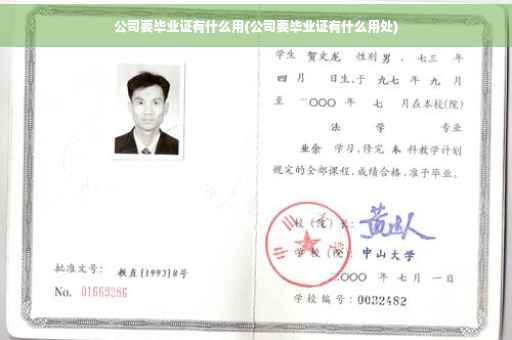 公司要毕业证有什么用(公司要毕业证有什么用处)
学生 贺文龙 性别 男 、七三 年
四 月 日生,于 九七 年 九 月
至 二〇〇〇 年 七 月在本校(院)
法 学 专业
业余 学习,修完 本 科教学计划
规定的全部课程,成绩合格,准予毕业。
校(院)长:
学 校(院): 中山大学
二〇〇〇 年 七 月 一 日
批准文号: 教直[1993]8号
No. 01663286
学校编号: 0032482